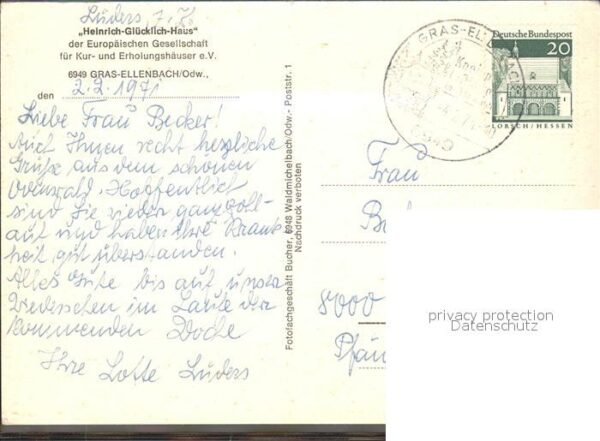 Lüders, 7. Z.
„Heinrich-Glücklich-Haus"
der Europäischen Gesellschaft
für Kur- und Erholungshäuser e.V.
6949 GRAS-ELLENBACH/Odw.,
den 2.2.1971
Liebe Frau Becker!
Auch Ihnen recht herzliche
Grüße aus dem schönen
Odenwald. Hoffentlich
sind Sie wieder ganz
auf und haben Ihre Krank-
heit gut überstanden.
Alles Gute bis auf unser
Wiedersehen im Laufe der
kommenden Woche
Ihre Lotte Lüders
Fotofachgeschäft Bucher, 6948 Waldmichelbach/Odw. - Poststr. 1
Nachdruck verboten
GRAS-ELLENBACH
Deutsche Bundespost
20
LORSCH/HESSEN
Frau
8000
privacy protection
Datenschutz